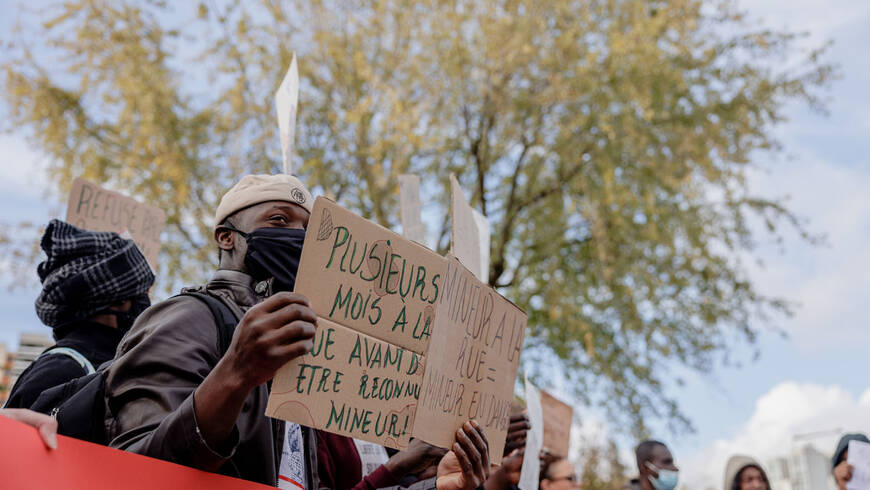 REFUSÉ
PLUSIEURS
MOIS À LA
RUE AVANT D
ETRE RECONNU
MINEUR!
MINEUR A LA
RUE =
MINEUR EN DANG